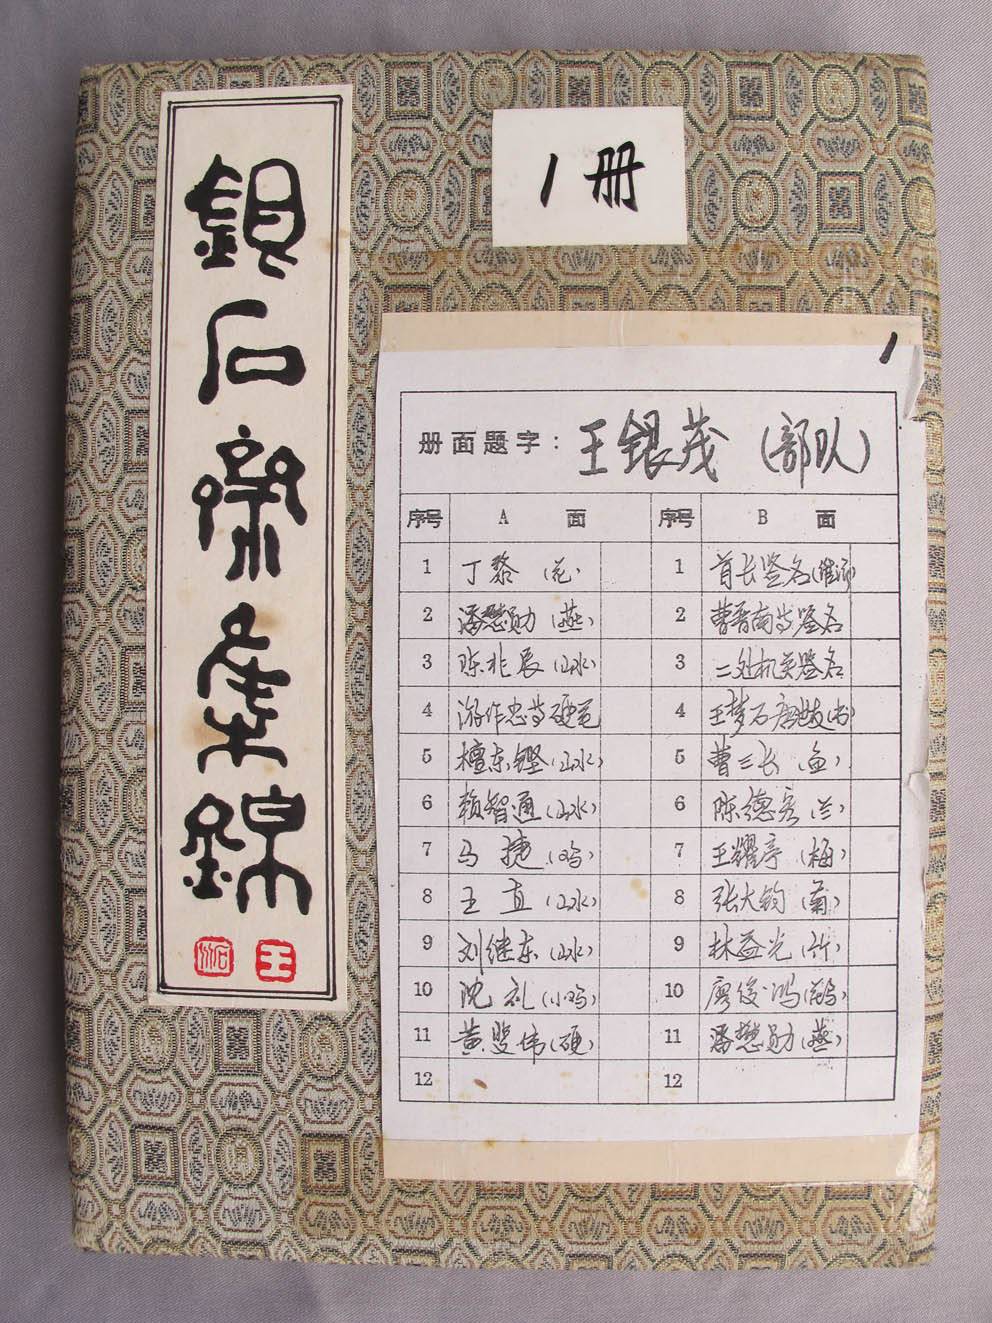 銀石齋集錦
王
1册
1
册面题字：王银茂（部队）
序号 A 面 序号 B 面
1 丁黎（花） 1 首长签名
2 潘懋勋（燕） 2 曹晋南等签名
3 陈兆辰（山水） 3 二处机关签名
4 游作忠等硬笔 4 王梦石
5 檀东铿（山水） 5 曹三长（鱼）
6 赖智通（山水） 6 陈德亮（兰）
7 马捷（鸡） 7 王耀亭（梅）
8 王直（山水） 8 张大钧（菊）
9 刘继东（山水） 9 林益光（竹）
10 沈礼（小鸡） 10 廖俊鸿
11 黄斐伟（硬） 11 潘懋勋（燕）
12 12